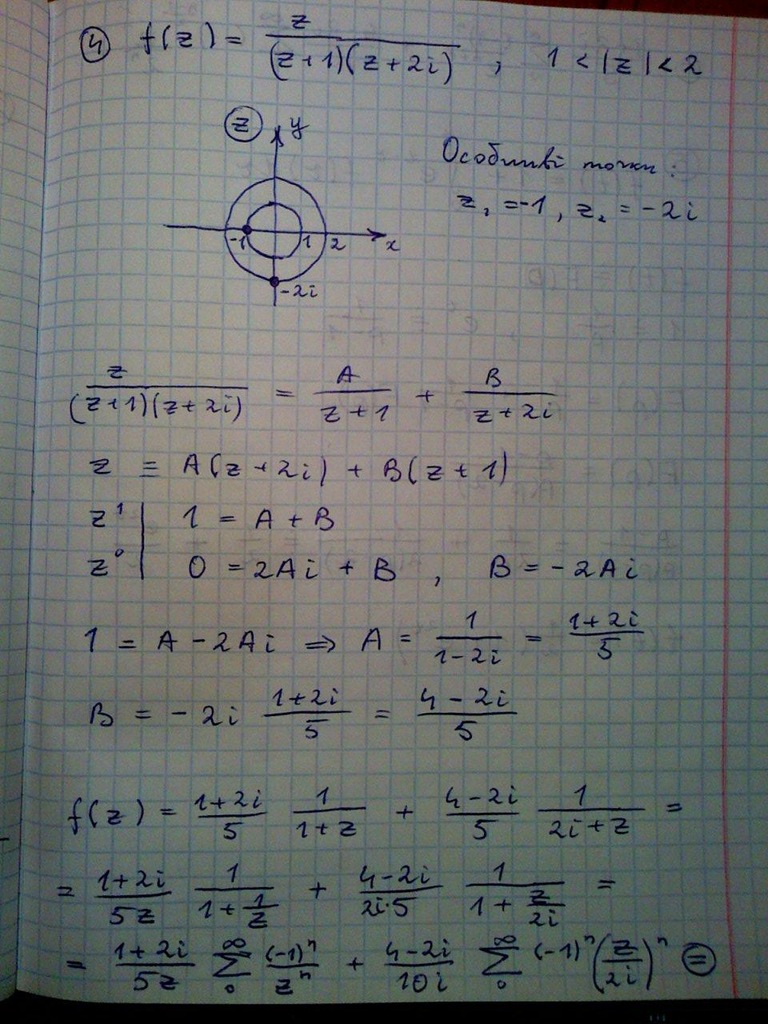 ④ f(z) = z / ((z+1)(z+2i)) , 1 < |z| < 2
z y
Особливі точки:
z₁ = -1, z₂ = -2i
-1 1 2 x
-2i
z / ((z+1)(z+2i)) = A / (z+1) + B / (z+2i)
z ≡ A(z+2i) + B(z+1)
z¹ | 1 = A + B
z⁰ | 0 = 2Ai + B , B = -2Ai
1 = A - 2Ai ⇒ A = 1 / (1-2i) = (1+2i) / 5
B = -2i (1+2i) / 5 = (4-2i) / 5
f(z) = (1+2i) / 5 1 / (1+z) + (4-2i) / 5 1 / (2i+z) =
= (1+2i) / 5z 1 / (1 + 1/z) + (4-2i) / (2i·5) 1 / (1 + z/2i) =
= (1+2i) / 5z ∑₀^∞ (-1)ⁿ / zⁿ + (4-2i) / 10i ∑₀^∞ (-1)ⁿ (z/2i)ⁿ ⊜